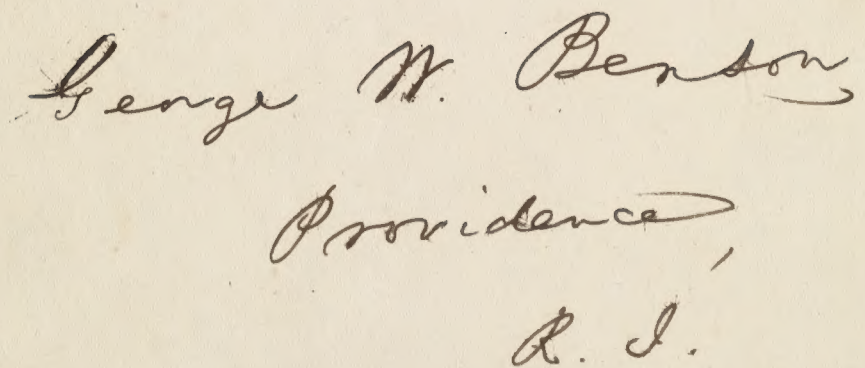 George W. Benson,
Providence,
R. I.